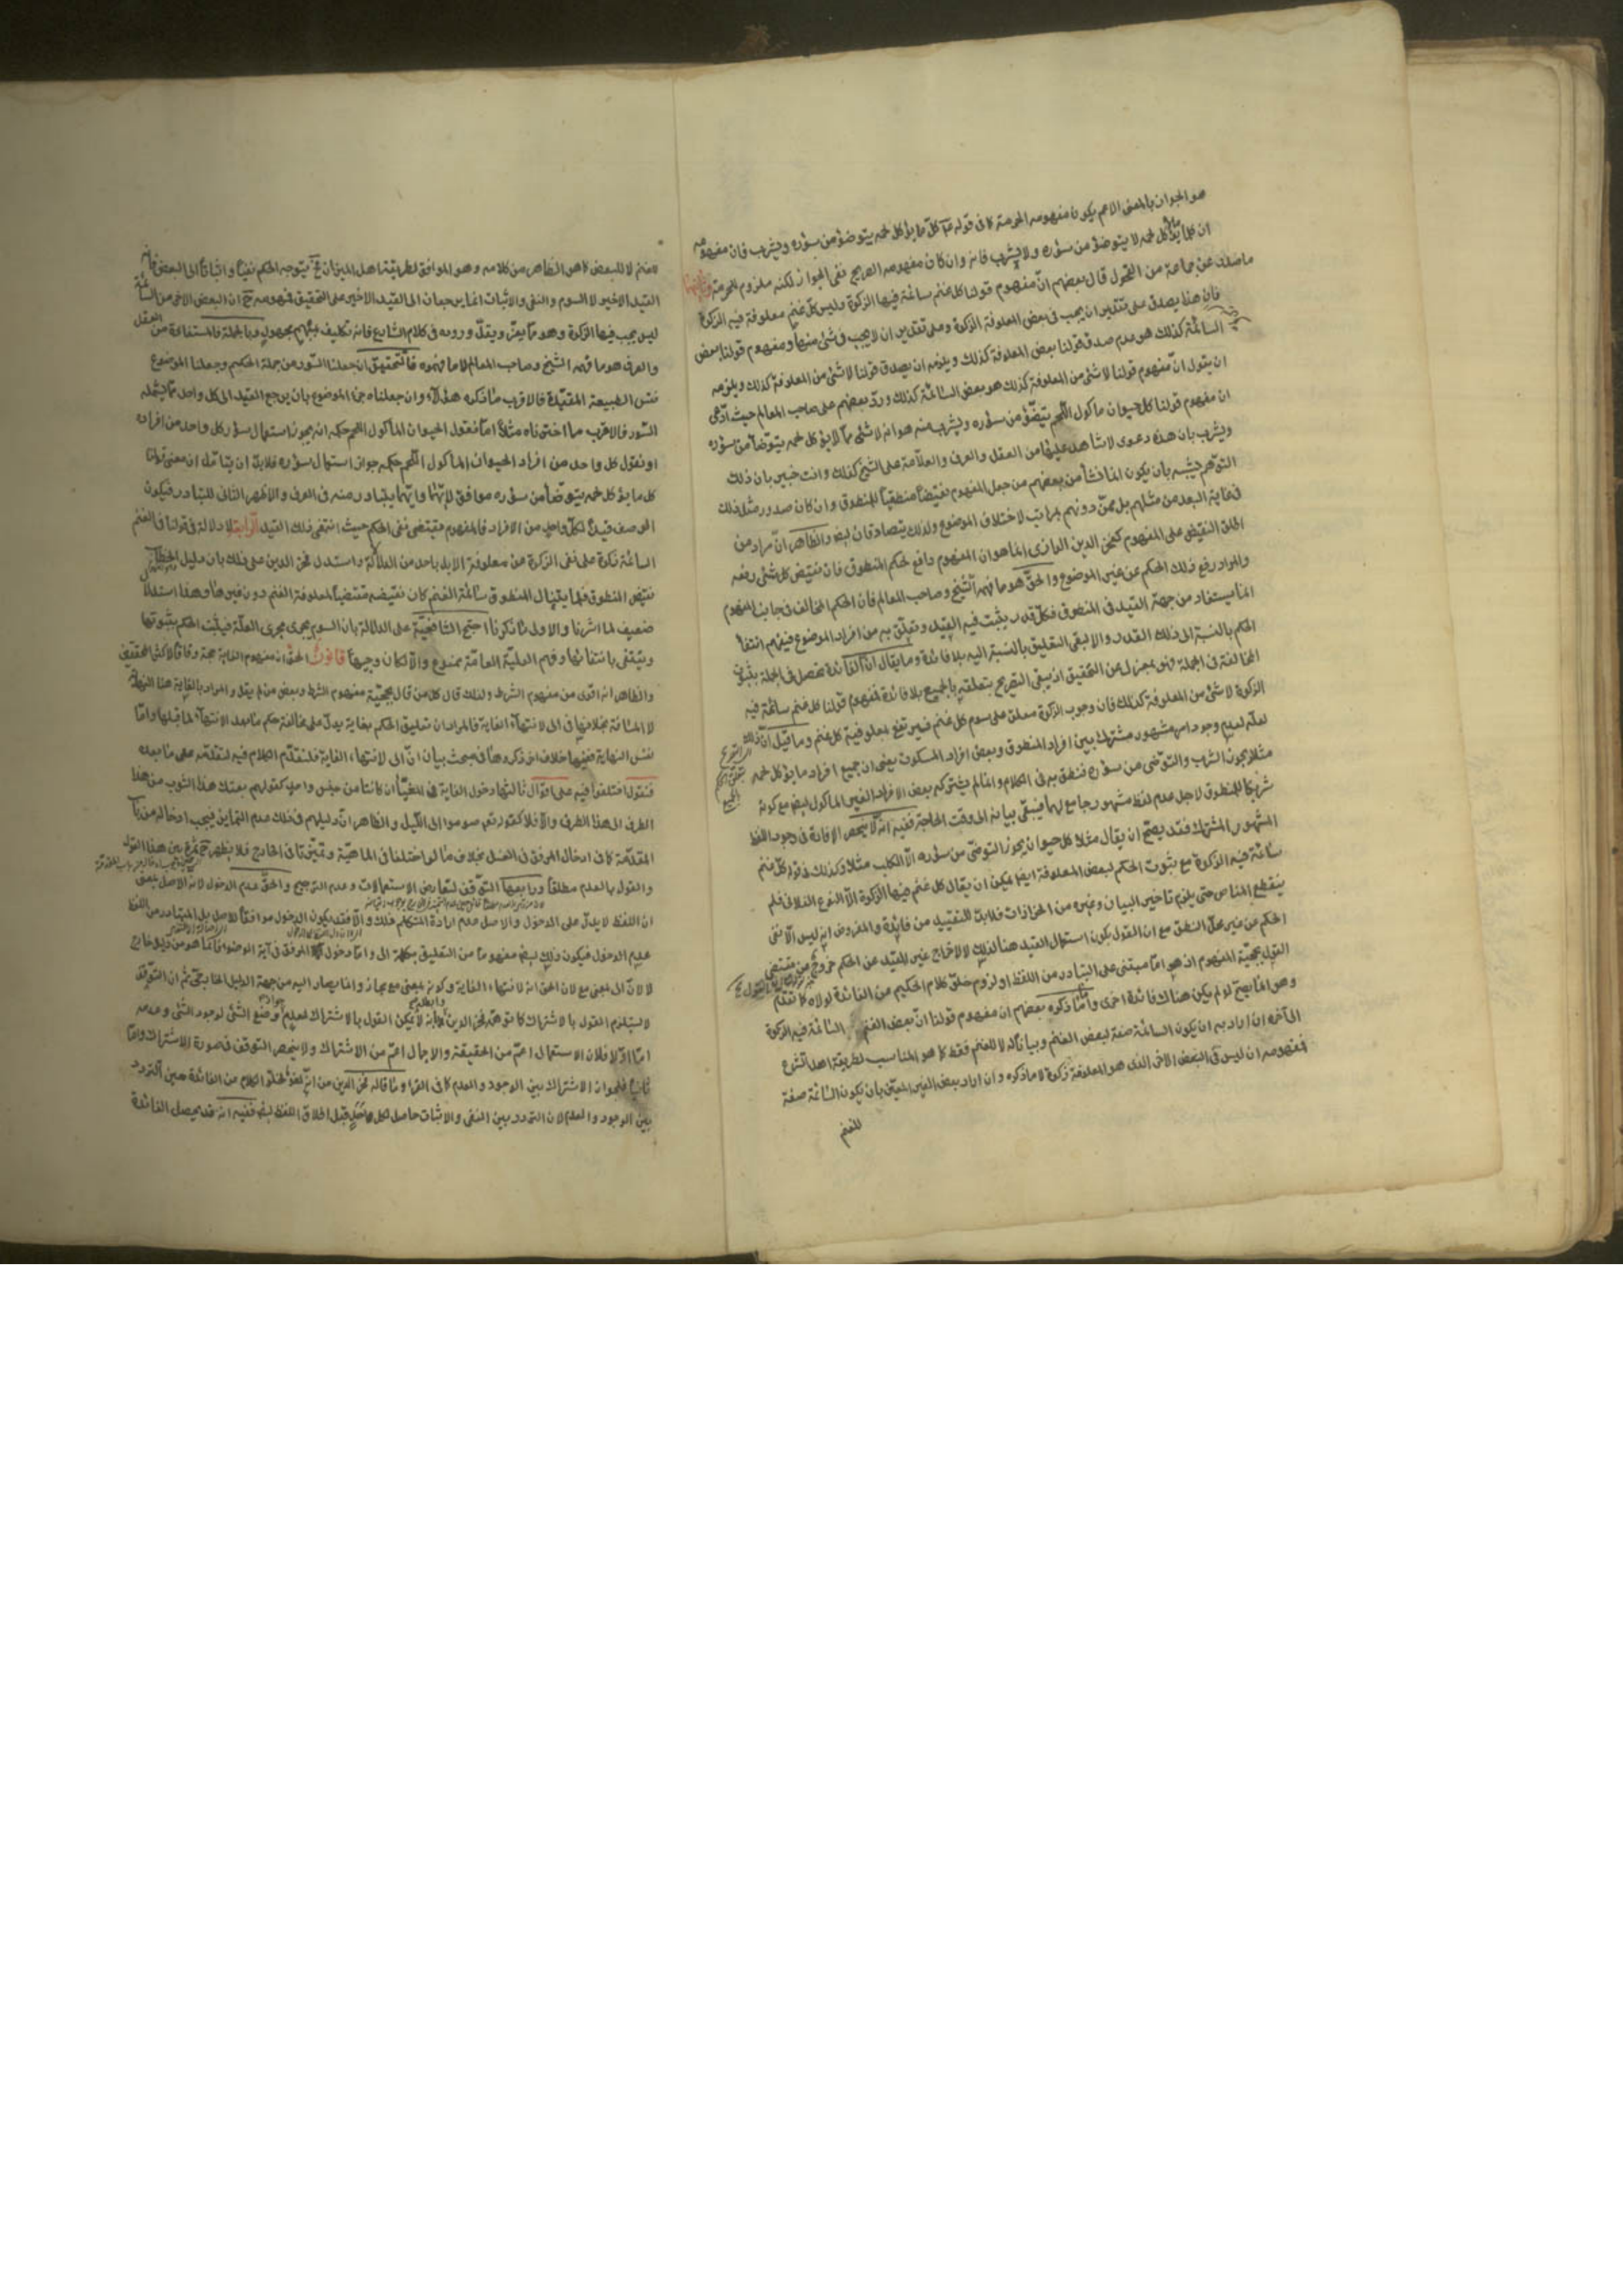 هو الجواز بالمعنى الاعم يكون مفهومه الحرمة كما فى قوله كل ما يؤكل لحمه يتوضؤ من سؤره ويشرب فان مفهومه
ان كلما لا يؤكل لحمه لا يتوضؤ من سؤره ولا يشرب فانه وان كان مفهومه الصريح نفى الجواز لكنه ملزوم للحرمة
ما صدر عن جماعة من الفحول قال بعضهم ان مفهوم قولنا كل غنم سائمة فيها الزكوة وليس كل غنم معلوفة فيه الزكوة
فان هذا يصدق على تقدير ان يجب فى بعض المعلوفة الزكوة وعلى تقدير ان لا يجب فى شئ منها ومفهوم قولنا بعض
السائمة كذلك هو عدم صدق قولنا بعض المعلوفة كذلك ويلزمه ان يصدق قولنا لا شئ من المعلوفة كذلك ويلزمه
ان يقول ان مفهوم قولنا لا شئ من المعلوفة كذلك هو بعض السائمة كذلك ورد بعضهم على صاحب المعالم حيث ادعى
ان مفهوم قولنا كل حيوان ماكول اللحم يتوضؤ من سؤره ويشرب منه هو انه لا شئ مما لا يؤكل لحمه يتوضأ من سؤره
ويشرب بان هذه دعوى لا شاهد عليها من العقل والعرف والعلامة على الشيخ كذلك وانت خبير بان ذلك
التوهم يشبه بان يكون انما نشأ من بعضهم من جعل المفهوم نقيضا منطقيا للمنطوق وان كان صدور مثل ذلك
فى غاية البعد من مثلهم بل ممن دونهم بمراتب لاختلاف الموضوع ولذلك يتصادقان ايض والظاهر ان مراد من
اطلق النقيض على المفهوم كفخر الدين الرازى انما هو ان المفهوم دافع لحكم المنطوق فان نقيض كل شئ رفعه
والمراد رفع ذلك الحكم عن غير الموضوع والحق هو ما فهمه الشيخ وصاحب المعالم فان الحكم المخالف فى جانب المفهوم
انما يستفاد من جهة القيد فى المنطوق فكل قدر يثبت فيه القيد وتعلق به من افراد الموضوع فيفهم انتفاء
الحكم بالنسبة الى ذلك القدر والا لبقى التعليق بالنسبة اليه بلا فائدة وما يقال ان الفائدة تحصل فى الجملة بثبوت
المخالفة فى الجملة فهو بمعزل عن التحقيق اذ يبقى التصريح بتعلقه بالجميع بلا فائدة فمفهوم قولنا كل غنم سائمة فيه
الزكوة لا شئ من المعلوفة كذلك فان وجوب الزكوة معلق على سوم كل غنم فيرتفع بمعلوفية كل غنم وما قيل ان ذلك
لعله لعدم وجود امر مشهور مشترك بين افراد المنطوق وبعض افراد المسكوت يعنى ان جميع افراد ما يؤكل لحمه
مثلا يجوز الشرب والتوضى من سؤره فنطق به فى الكلام وانما لم يشترك بعض الافراد الغير الماكول ايض مع كونه
شريكا للمنطوق لاجل عدم لفظ مشهور جامع لهما فيبقى بيانه الى وقت الحاجة ففيه انه لا ينحصر الافادة فى وجود اللفظ
المشهور المشترك فقد يصح ان يقال مثلا كل حيوان يجوز التوضى من سؤره الا الكلب مثلا وكذلك فى قوله كل غنم
سائمة فيه الزكوة مع ثبوت الحكم لبعض المعلوفة ايض يمكن ان يقال كل غنم فيها الزكوة الا النوع الفلانى فلم
ينقطع المناص حتى يلزم تاخير البيان وغيره من الحزازات فلا بد للتقييد من فائدة والمفروض انه ليس الا نفى
الحكم عن غير محل النطق مع ان القول بكون استعمال القيد هنا لذلك لا لاخراج غير المقيد عن الحكم خروج عن مقتضى
القول بحجية المفهوم اذ هو اما مبتنى على التبادر من اللفظ او لزوم خلو كلام الحكيم من الفائدة لولاه كما تقدم
وهو انما يصح لو لم يكن هناك فائدة اخرى واما ما ذكره بعضهم ان مفهوم قولنا ان بعض الغنم السائمة فيه الزكوة
الى آخره ان اراد به ان يكون السائمة صفة لبعض الغنم وبيانا له لا للغنم فقط كما هو المناسب لطريقة اهل الشرع
فمفهومه ان ليس فى البعض الاخر الذى هو المعلوفة زكوة لا ما ذكره وان اراد بعض الغير المعين بان يكون السائمة صفة
للغنم
لا للبعض كما هو الظاهر من كلامه وهو الموافق لطريقة اهل الميزان فح يتوجه الحكم نفيا واثباتا الى البعض فانه
القيد الاخير لا السوم والنفى والاثبات انما يرجعان الى القيد الاخير على التحقيق فمفهومه ح ان البعض الاخر من السائمة
ليس يجب فيها الزكوة وهو مما يعز ويقل وروده فى كلام الشارع فانه تكليف بمبهم مجهول وبالجملة فالمستفاد من العقل
والعرف هو ما فهمه الشيخ وصاحب المعالم لا ما فهموه فالتحقيق ان جعلنا السور من جملة الحكم وجعلنا الموضوع
نفس الطبيعة المقيدة فالاقرب ما ذكره هؤلاء وان جعلناه جزء الموضوع بان يرجع القيد الى كل واحد مما يشمله
السور فالاقرب ما اخترناه مثلا اما نقول الحيوان الماكول اللحم حكمه انه يجوز استعمال سؤر كل واحد من افراده
او نقول كل واحد من افراد الحيوان الماكول اللحم حكمه جواز استعمال سؤره فلا بد ان يتامل ان معنى قولنا
كل ما يؤكل لحمه يتوضأ من سؤره موافق لايهما وايهما يتبادر منه فى العرف والاظهر الثانى للتبادر فيكون
الوصف قيدا لكل واحد من الافراد فالمفهوم يقتضى نفى الحكم حيث انتفى ذلك القيد الرابع لا دلالة فى قولنا فى الغنم
السائمة زكوة على نفى الزكوة عن معلوفة الابل باحد من الدلالة واستدل فخر الدين على ذلك بان دليل الخطاب
نقيض المنطوق فلما يتناول المنطوق سائمة الغنم كان نقيضه مقتضيا لمعلوفة الغنم دون غيرها وهذا استدلال
ضعيف لما اشرنا والاولى ما ذكرنا احتج الشافعية على الدلالة بان السوم يجرى مجرى العلة فيثبت الحكم بثبوتها
وينتفى بانتفائها وفهم العلية العامة ممنوع والا لكان وجيها قانون الحق ان مفهوم الغاية حجة وفاقا لاكثر المحققين
والظاهر انه اقوى من مفهوم الشرط ولذلك قال كل من قال بحجية مفهوم الشرط وبعض من لم يقل والمراد بالغاية هنا النهاية
لا المسافة بخلافها فى الى لانتهاء الغاية فالمراد ان تعليق الحكم بغاية يدل على مخالفة حكم ما بعد الانتهاء لما قبلها واما
نفس النهاية ففيها خلاف اخر ذكروها فى مبحث بيان ان الى لانتهاء الغاية فلنقدم الكلام فيه لتقدمه على ما بعده
فنقول اختلفوا فيه على اقوال ثالثها دخول الغاية فى المغيا ان كانتا من جنس واحد كقولهم بعتك هذا الثوب من هذا
الطرف الى هذا الطرف والا فلا كقوله تعم صوموا الى الليل والظاهر ان دليلهم فى ذلك عدم التمايز فيجب ادخاله من باب
المقدمة كما فى ادخال المرفق فى الغسل بخلاف ما لو اختلفا فى الماهية وتميزتا فى الخارج فلا يظهر ح فرق بين هذا القول
والقول بالعدم مطلقا ورابعها التوقف لتعارض الاستعمالات وعدم الترجيح والحق عدم الدخول لانه الاصل بمعنى
ان اللفظ لا يدل على الدخول والاصل عدم ارادة المتكلم ذلك والا فقد يكون الدخول موافقا للاصل بل المتبادر من اللفظ
عدم الدخول فيكون ذلك ايض مفهوما من التعليق بكلمة الى واما دخول المرفق فى آية الوضوء فانما هو من دليل خارج
لا لان الى بمعنى مع لان الحق انه لانتهاء الغاية وكونه بمعنى مع مجاز وانما يصار اليه من جهة الدليل الخارجى ثم ان التوقف
لا يستلزم القول بالاشتراك كما توهمه فخر الدين لا يمكن القول بالاشتراك لعدم جواز وضع الشئ لوجود الشئ وعدمه
اما اولا فلان الاستعمال اعم من الحقيقة والاجمال اعم من الاشتراك ولا ينحصر التوقف فى صورة الاشتراك واما
ثانيا فلجواز الاشتراك بين الوجود والعدم كما فى القرء وما قاله فخر الدين من انه لغو لخلو الكلام من الفائدة حين التردد
بين الوجود والعدم لان التردد بين النفى والاثبات حاصل لكل احد قبل اطلاق اللفظ ايض ففيه انه قد يحصل الفائدة